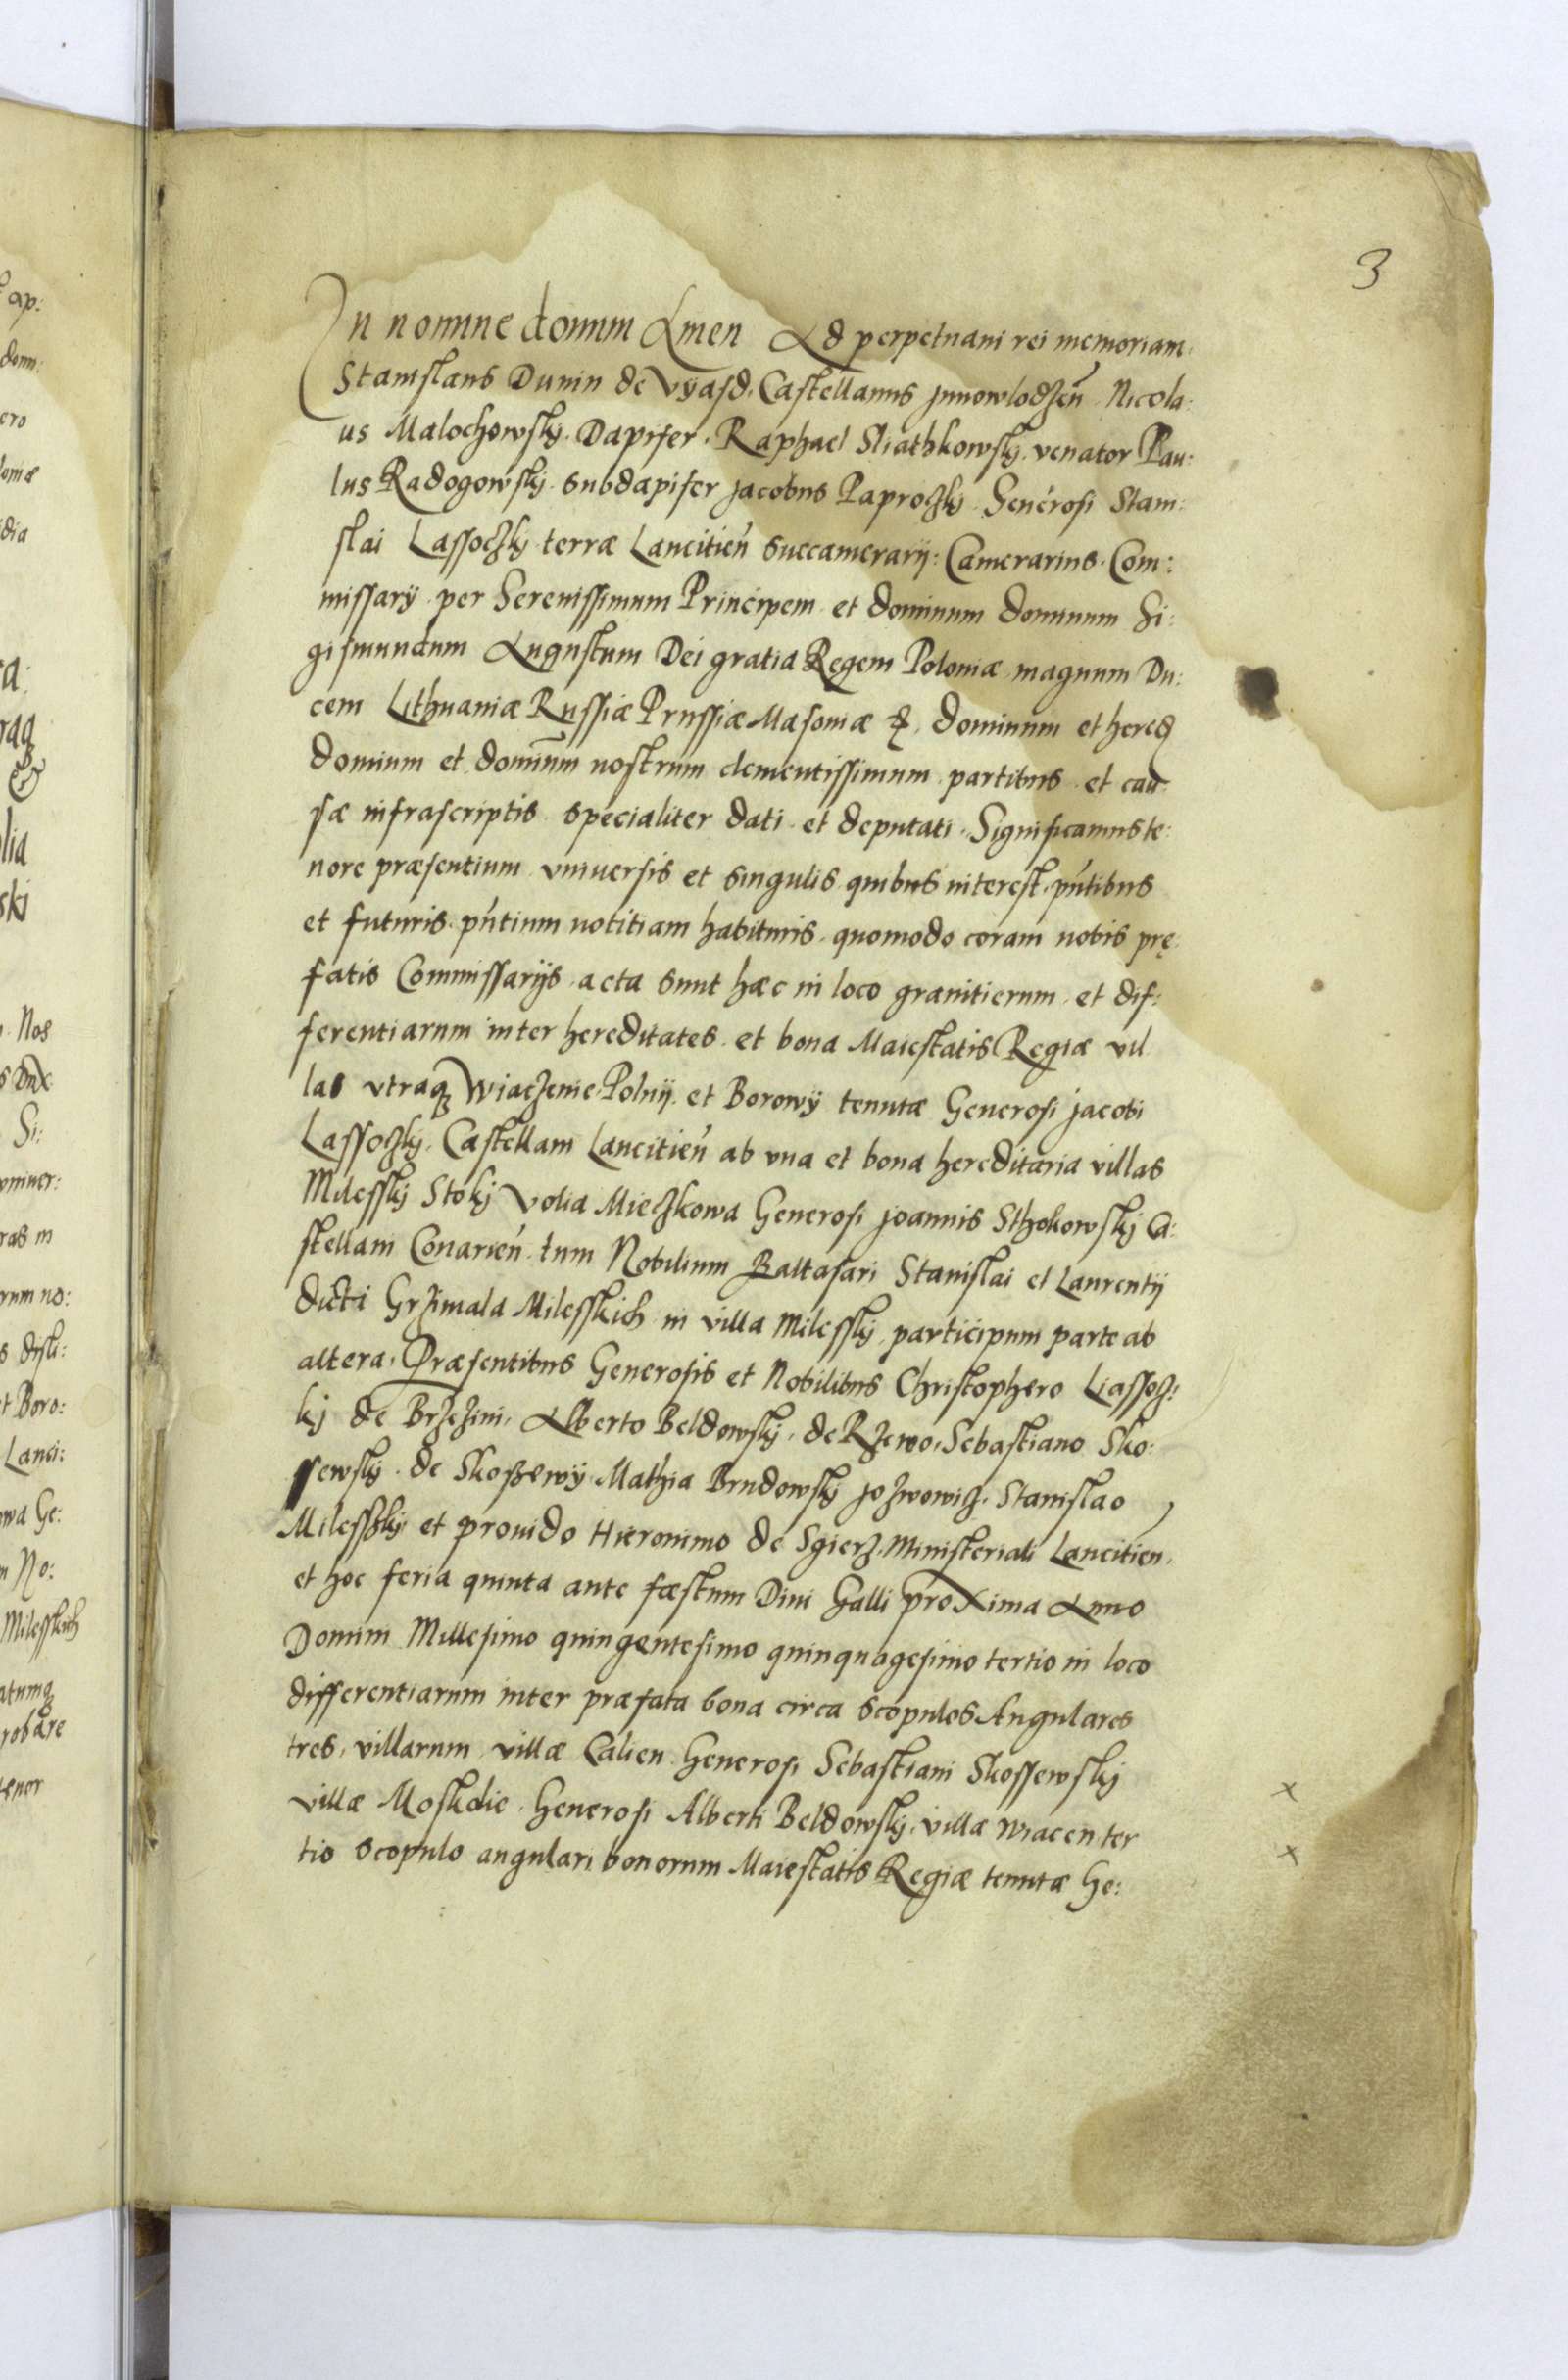 3
In nomine domini Amen Ad perpetuam rei memoriam.
Stanislaus Dunin de Vyasd. Castellanus Junowlodzen̄ Nicola:
us Malochowskÿ. Dapifer. Raphael Sliathkowskÿ. venator Pau:
lus Radogowskÿ. subdapifer Jacobus Paproczkÿ. Generosi Stani:
slai Lassoczkÿ terræ Lancitien̄ succamerarÿ: Camerarius. Com:
missarÿ. per Serenissimum Principem et dominum dominum Si:
gismundum Augustum Dei gratia Regem Poloniæ magnum Du:
cem Lithuaniæ Russiæ Prussiæ Masoniæ &, dominum et hered
domium et dominūm nostrum clementissimum partibus et cau
sæ infrascriptis specialiter dati et deputati. Significamus te:
nore præsentium vniuersis et singulis quibus interest. pn̄tibus
et futuris. pn̄tium notitiam habituris. quomodo coram nobis prę:
fatis Commissarÿs acta sunt hæc in loco granitierum et dif:
ferentiarum inter hereditates et bona Maiestatis Regiæ vil
las vtraqꝫ Wiaczenie Polnÿ. et Borowÿ tenutæ Generosi Jacobi
Lassoczkÿ. Castellani Lancitien̄ ab vna et bona hereditaria villas
Milesskÿ Stokÿ Volia Mieczkowa Generosi Joannis Sthokowskÿ Ca:
stellani Conarien̄ tum Nobilium Baltasari Stanislai et Laurentÿ
dicti Grzimala Milesskich in villa Milesskÿ participum parte ab
altera. Præsentibus Generosis et Nobilibus Christophero Liassoz:
kÿ de Brzezini, Alberto Beldowskÿ. de Rzewo. Sebastiano Sko:
sewskÿ. de Skoszewÿ Mathia Brudowskÿ Jozwowiz. Stanislao
Milesskÿ et prouido Hieronimo de Sgierz. Ministeriali Lancitien.
et hoc feria quinta ante fæstum Diui Galli proxima Anno
Domini Millesimo quingentesimo quinquagesimo tertio in loco
differentiarum inter præfata bona circa scopulos Angulares
tres. villarum villæ Calien Generosi Sebastiani Skossewskÿ
villæ Moskolie. Generosi Alberti Beldowskÿ. villæ Wiacen ter
tio scopulo angulari bonorum Maiestatis Regiæ tenutæ Ge: